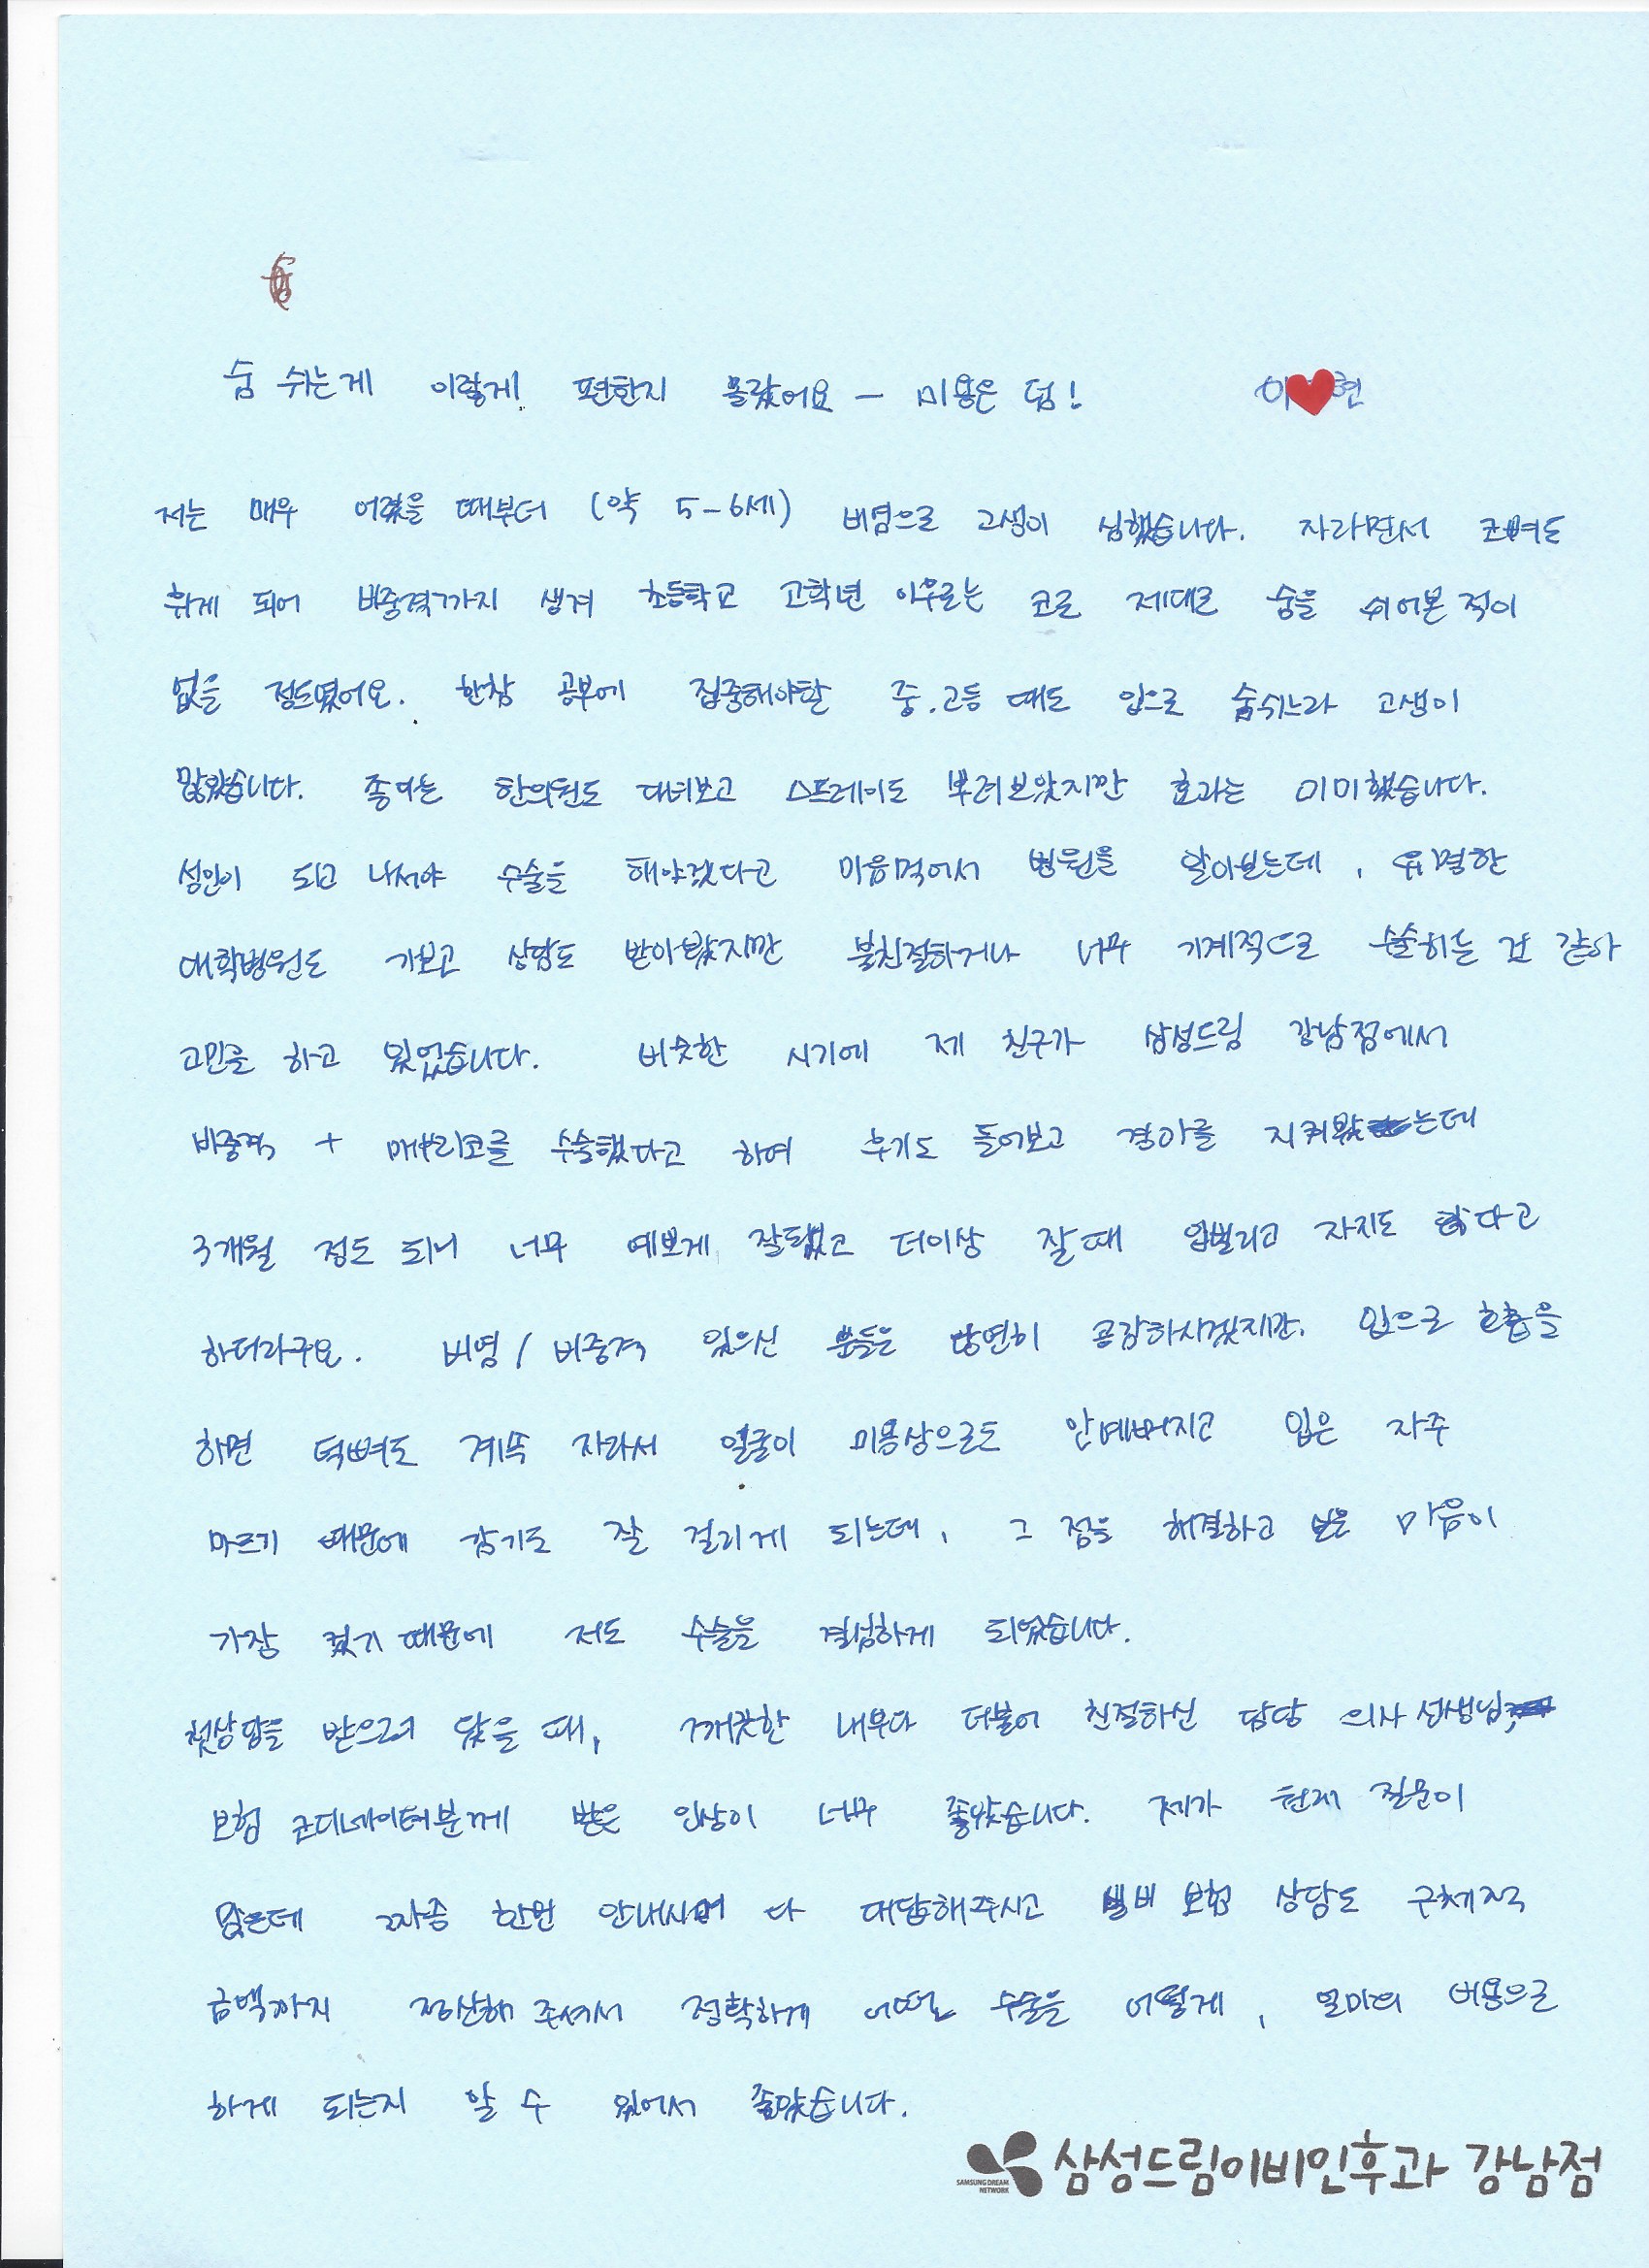 숨 쉬는게 이렇게 편한지 몰랐어요 - 미용은 덤! 이 현
저는 매우 어렸을 때부터 (약 5-6세) 비염으로 고생이 심했습니다. 자라면서 코뼈도
휘게 되어 비중격까지 생겨 초등학교 고학년 이후로는 코로 제대로 숨을 쉬어본 적이
없을 정도였어요. 한참 공부에 집중해야할 중.고등 때도 입으로 숨쉬느라 고생이
많았습니다. 좋다는 한의원도 다녀보고 스프레이도 뿌려보았지만 효과는 미미했습니다.
성인이 되고 나서야 수술을 해야겠다고 마음먹어서 병원을 알아보는데, 유명한
대학병원도 가보고 상담도 받아봤지만 불친절하거나 너무 기계적으로 수술하는 것 같아
고민을 하고 있었습니다. 비슷한 시기에 제 친구가 삼성드림 강남점에서
비중격 + 매부리코를 수술했다고 하여 후기도 들어보고 경과를 지켜봤는데
3개월 정도 되니 너무 예쁘게 잘됐고 더이상 잘때 입벌리고 자지도 않다고
하더라구요. 비염/비중격 있으신 분들은 당연히 공감하시겠지만. 입으로 호흡을
하면 턱뼈도 계속 자라서 얼굴이 미용상으로도 안예뻐지고 입은 자주
마르기 때문에 감기도 잘 걸리게 되는데, 그 점을 해결하고 싶은 마음이
가장 컸기 때문에 저도 수술을 결심하게 되었습니다.
첫상담을 받으러 갔을 때, 깨끗한 내부와 더불어 친절하신 담당 의사 선생님,
보험 코디네이터분께 받은 인상이 너무 좋았습니다. 제가 원체 질문이
많은데 짜증 한번 안내시며 다 대답해주시고 실비 보험 상담도 구체적
금액까지 정산해 주셔서 정확하게 어떤 수술을 어떻게, 얼마의 비용으로
하게 되는지 알 수 있어서 좋았습니다.
SAMSUNG DREAM NETWORK 삼성드림이비인후과 강남점